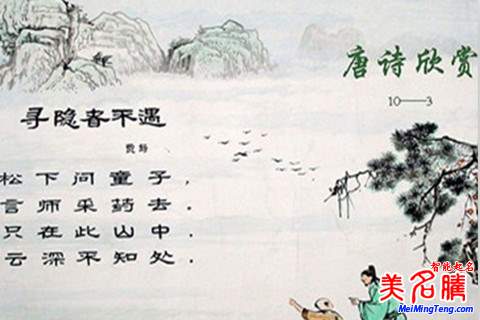 唐诗欣赏
10——3
寻隐者不遇
松下问童子，
言师采药去．
只在此山中．
云深不知处．
智能起名
美名腾
MeiMingTeng.com